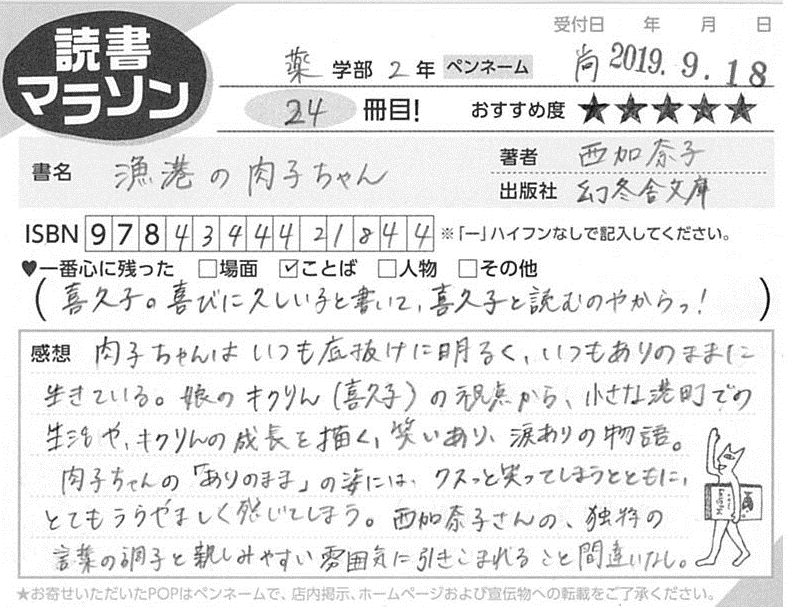 受付日 年 月 日
読書
マラソン
薬 学部 2 年 ペンネーム 尚 2019. 9. 18
24 冊目! おすすめ度 ★★★★★
書名 漁港の肉子ちゃん
著者 西加奈子
出版社 幻冬舎文庫
ISBN 9784344421844 ※「ー」ハイフンなしで記入してください。
♥一番心に残った □場面 ☑ことば □人物 □その他
(喜久子。喜びに久しい子と書いて、喜久子と読むのやからっ!)
感想 肉子ちゃんはいつも底抜けに明るく、いつもありのままに
生きている。娘のキクりん(喜久子)の視点から、小さな港町での
生活や、キクりんの成長を描く、笑いあり、涙ありの物語。
肉子ちゃんの「ありのまま」の姿には、クスっと笑ってしまうとともに、
とてもうらやましく感じてしまう。西加奈子さんの、独特の
言葉の調子と親しみやすい雰囲気に引きこまれること間違いなし。
★お寄せいただいたPOPはペンネームで、店内掲示、ホームページおよび宣伝物への転載をご了承ください。